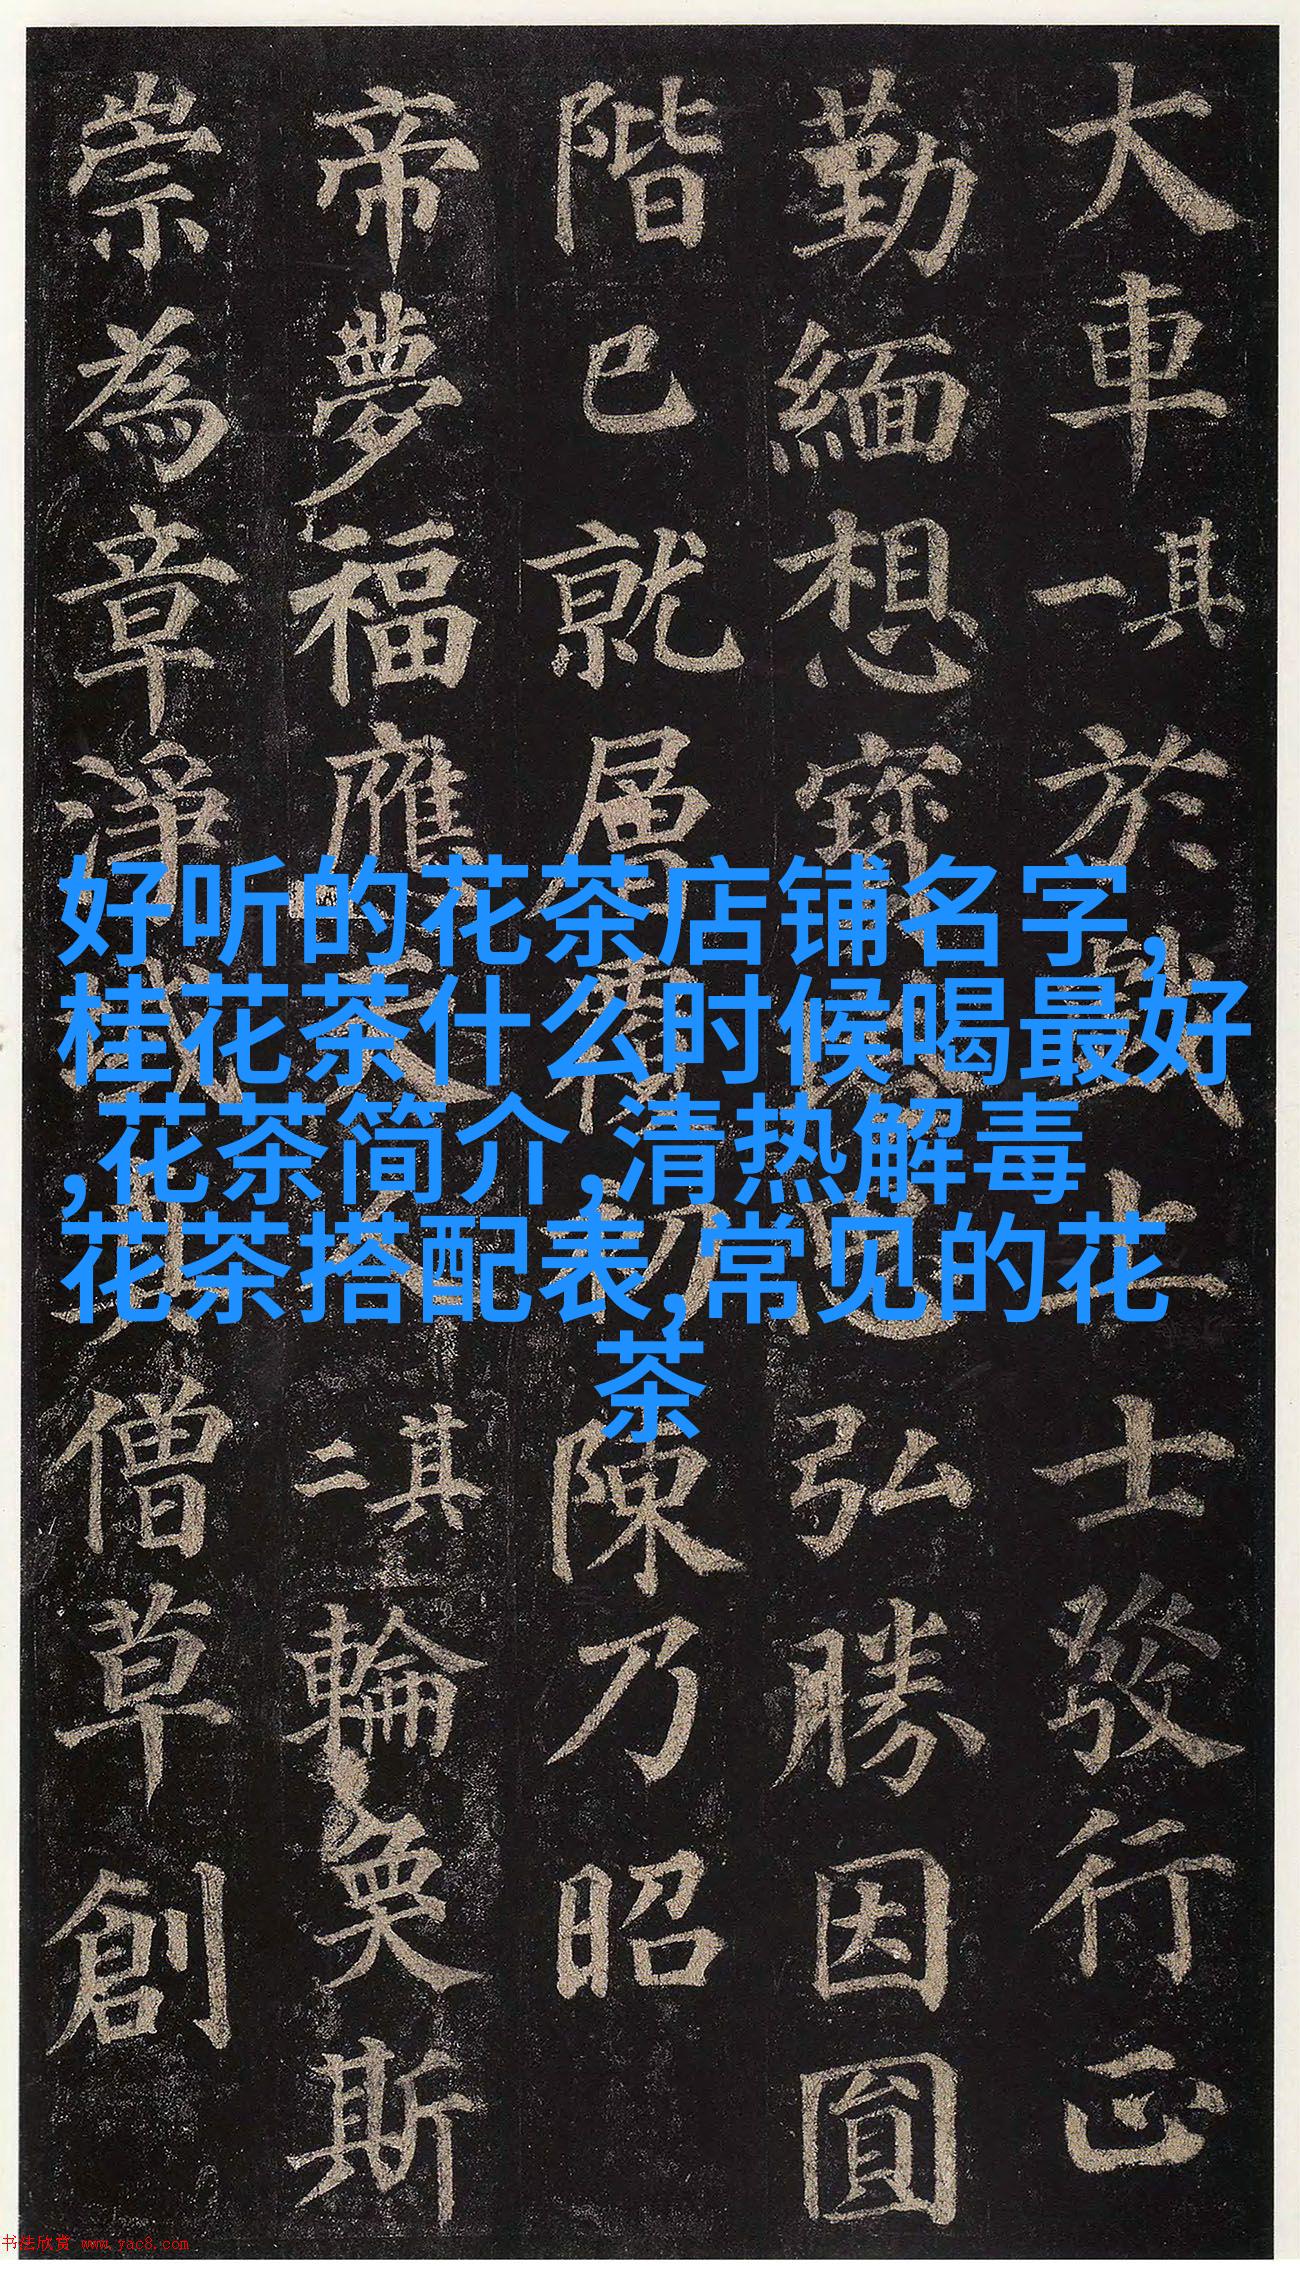 大車其一於戲上士發行正
勤緬想弘勝因圓
階已就層陳乃昭
帝夢福應其二輪奐斯
崇為章淨域僧草創
好听的花茶店铺名字,
桂花茶什么时候喝最好
,花茶简介,清热解毒
花茶搭配表,常见的花
茶
书法欣赏 www.yac8.com